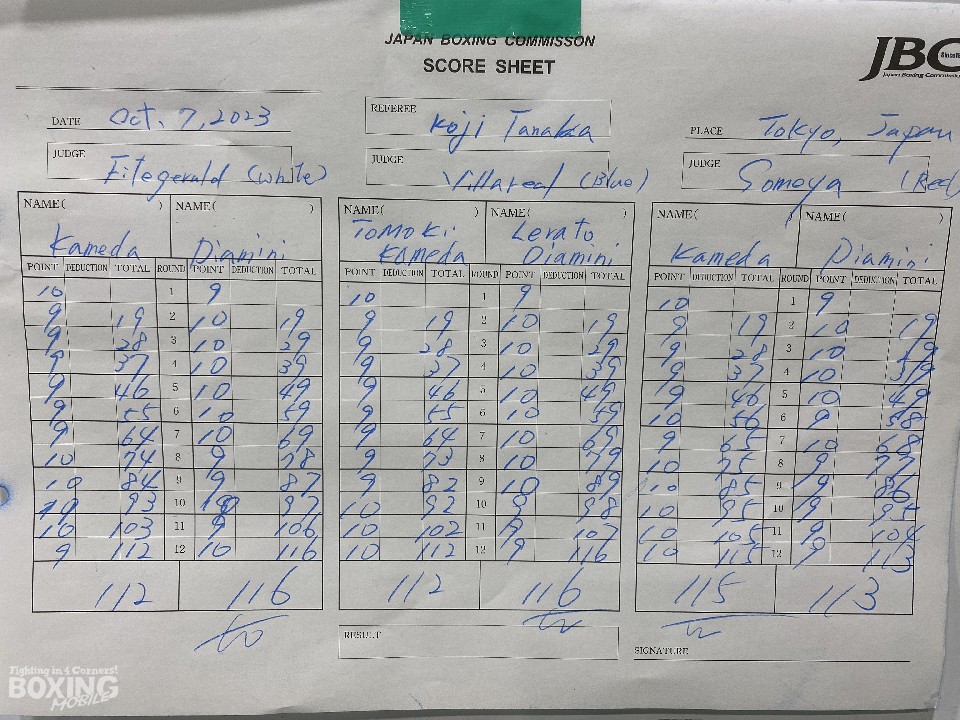 JAPAN BOXING COMMISSON
SCORE SHEET
JBC
Japan Boxing Commission
DATE Oct. 7, 2023
REFEREE Koji Tanaka
PLACE Tokyo, Japan
JUDGE Fitegerald (White) JUDGE Villareal (Blue) JUDGE Someya (Red)
NAME( ) NAME( ) NAME( ) NAME( ) NAME( ) NAME( )
Kameda Diamini Tomoki Kameda Lerato Diamini Kameda Diamini
POINT DEDUCTION TOTAL ROUND POINT DEDUCTION TOTAL POINT DEDUCTION TOTAL ROUND POINT DEDUCTION TOTAL POINT DEDUCTION TOTAL ROUND POINT DEDUCTION TOTAL
10 1 9 10 1 9 10 1 9
9 19 2 10 19 9 19 2 10 19 9 19 2 10 19
9 28 3 10 29 9 28 3 10 29 9 28 3 10 29
9 37 4 10 39 9 37 4 10 39 9 37 4 10 39
9 46 5 10 49 9 46 5 10 49 9 46 5 10 49
9 55 6 10 59 9 55 6 10 59 10 56 6 9 58
9 64 7 10 69 9 64 7 10 69 9 65 7 10 68
10 74 8 9 78 9 73 8 10 79 10 75 8 9 77
10 84 9 9 87 9 82 9 10 89 10 85 9 9 86
93 10 97 10 92 10 9 98 10 95 10 9 95
10 103 11 9 106 10 102 11 9 107 10 105 11 9 104
9 112 12 10 116 10 112 12 9 116 10 115 12 9 113
112 116 112 116 115 113
RESULT
SIGNATURE
Fighting in 4 Corners!
BOXING
MOBILE